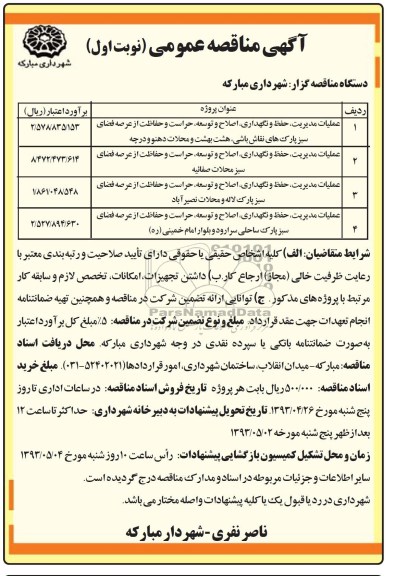 آگهی مناقصه عمومی (نوبت اول)
شهرداری مبارکه
دستگاه مناقصه گزار: شهرداری مبارکه
ردیف عنوان پروژه برآورد اعتبار (ریال)
۱ عملیات مدیریت، حفظ و نگهداری، اصلاح و توسعه، حراست و حفاظت از عرصه فضای ۲/۵۷۸/۸۳۵/۱۵۳
سبز پارک های نقاش باشی، هشت بهشت و محلات دهنو و درچه
۲ عملیات مدیریت، حفظ و نگهداری، اصلاح و توسعه، حراست و حفاظت از عرصه فضای ۸/۴۷۲/۴۷۳/۶۱۴
سبز محلات صفائیه
۳ عملیات مدیریت، حفظ و نگهداری، اصلاح و توسعه، حراست و حفاظت از عرصه فضای ۱/۸۶۱/۰۴۸/۵۴۸
سبز پارک لاله و محلات نصیرآباد
۴ عملیات مدیریت، حفظ و نگهداری، اصلاح و توسعه، حراست و حفاظت از عرصه فضای ۲/۵۲۷/۸۹۴/۶۳۰
سبز پارک ساحلی سرارود و بلوار امام خمینی (ره)
شرایط متقاضیان: الف) کلیه اشخاص حقیقی یا حقوقی دارای تأیید صلاحیت و رتبه بندی معتبر با
رعایت ظرفیت خالی (مجاز) ارجاع کار. ب) داشتن تجهیزات، امکانات، تخصص لازم و سابقه کار
مرتبط با پروژه های مذکور. ج) توانایی ارائه تضمین شرکت در مناقصه و همچنین تهیه ضمانتنامه
انجام تعهدات جهت عقد قرارداد. مبلغ و نوع تضمین شرکت در مناقصه: ۵٪ مبلغ کل برآورد اعتبار
به صورت ضمانتنامه بانکی یا سپرده نقدی در وجه شهرداری مبارکه. محل دریافت اسناد
مناقصه: مبارکه-میدان انقلاب، ساختمان شهرداری، امور قراردادها (۵۲۴۰۲۰۲۱-۰۳۱). مبلغ خرید
اسناد مناقصه: ۵۰۰/۰۰۰ ریال بابت هر پروژه تاریخ فروش اسناد مناقصه: در ساعات اداری تا روز
پنج شنبه مورخ ۱۳۹۳/۰۴/۲۶. تاریخ تحویل پیشنهادات به دبیرخانه شهرداری: حداکثر تا ساعت ۱۲
بعد از ظهر پنج شنبه مورخه ۱۳۹۳/۰۵/۰۲
زمان و محل تشکیل کمیسیون بازگشایی پیشنهادات: رأس ساعت ۱۰ روز شنبه مورخ ۱۳۹۳/۰۵/۰۴
سایر اطلاعات و جزئیات مربوطه در اسناد و مدارک مناقصه درج گردیده است.
شهرداری در رد یا قبول یک یا کلیه پیشنهادات واصله مختار می باشد.
ناصر نفری - شهردار مبارکه
ParsNamadData